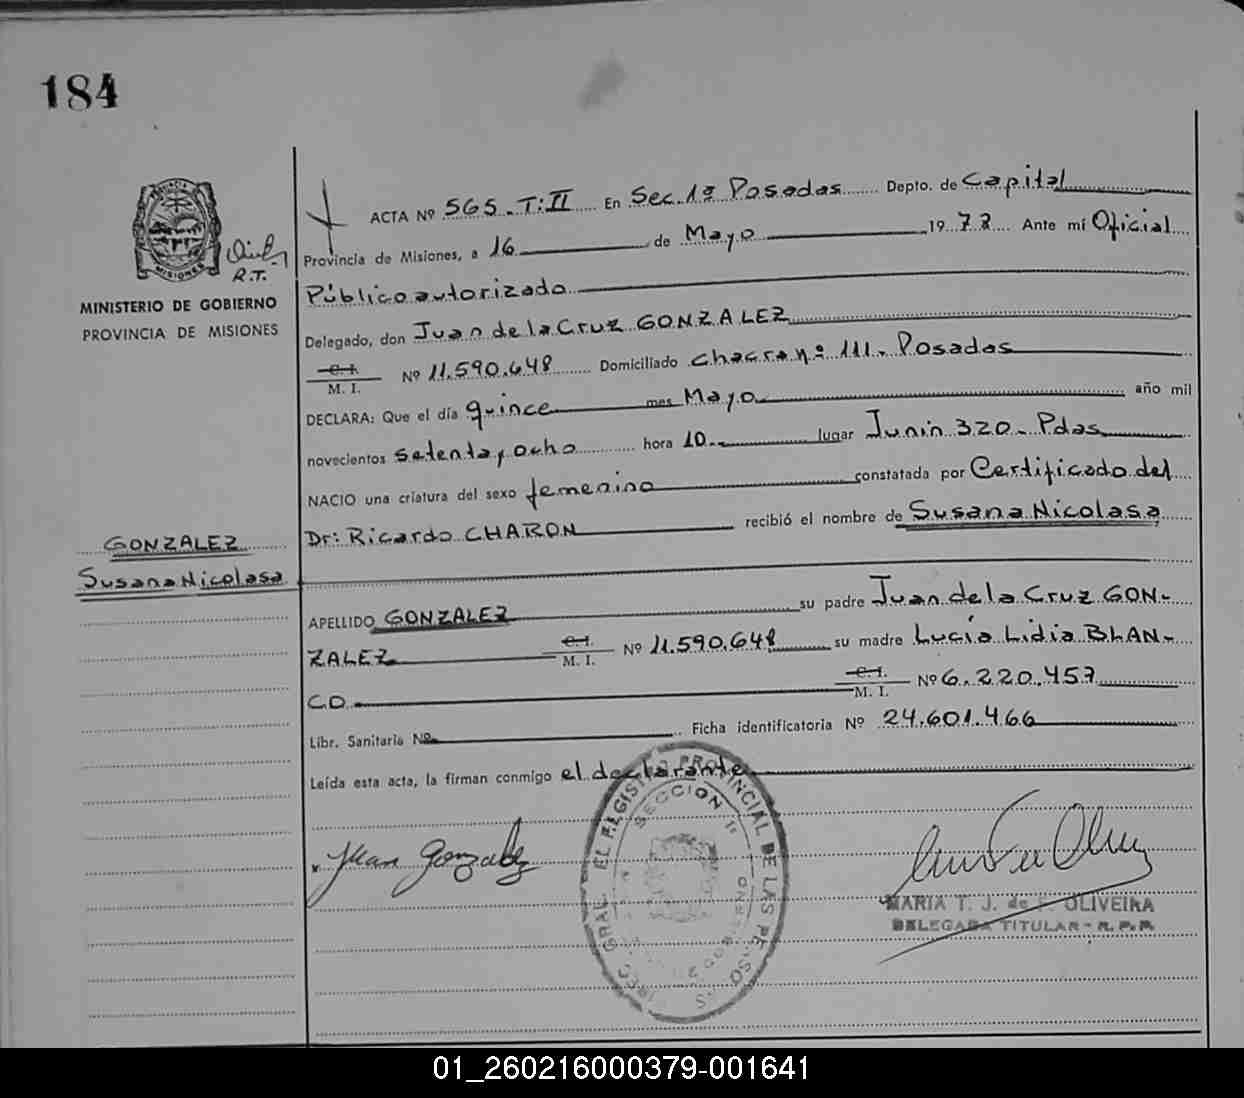 184
ACTA Nº 565.T:II En Sec.1ª Posadas Depto. de Capital
Provincia de Misiones, a 16 de Mayo 1978 Ante mí Oficial
R.T.
MISIONES
MINISTERIO DE GOBIERNO
PROVINCIA DE MISIONES
Público autorizado
Delegado, don Juan de la Cruz GONZALEZ
C.I.
M. I. Nº 11.590.648 Domiciliado chacra nº 111. Posadas
DECLARA: Que el día quince mes Mayo año mil
novecientos setenta y ocho hora 10.- lugar Junin 320- Pdas
NACIO una criatura del sexo femenino constatada por Certificado del
Dr: Ricardo CHARON recibió el nombre de Susana Nicolasa
GONZALEZ
Susana Nicolasa
APELLIDO GONZALEZ su padre Juan de la Cruz GON-
ZALEZ C.I. M. I. Nº 11.590.648 su madre Lucía Lidia BLAN-
CO C.I. M. I. Nº 6.220.457
Libr. Sanitaria Nº Ficha identificatoria Nº 24.601.466
Leída esta acta, la firman conmigo el declarante
GRAL. EL REGISTRO PROVINCIAL DE LAS PERSONAS
SECCION 1ª
GOBIERNO
Juan Gonzalez
MARIA T. J. de OLIVEIRA
DELEGADA TITULAR - R. P. P.
01_260216000379-001641